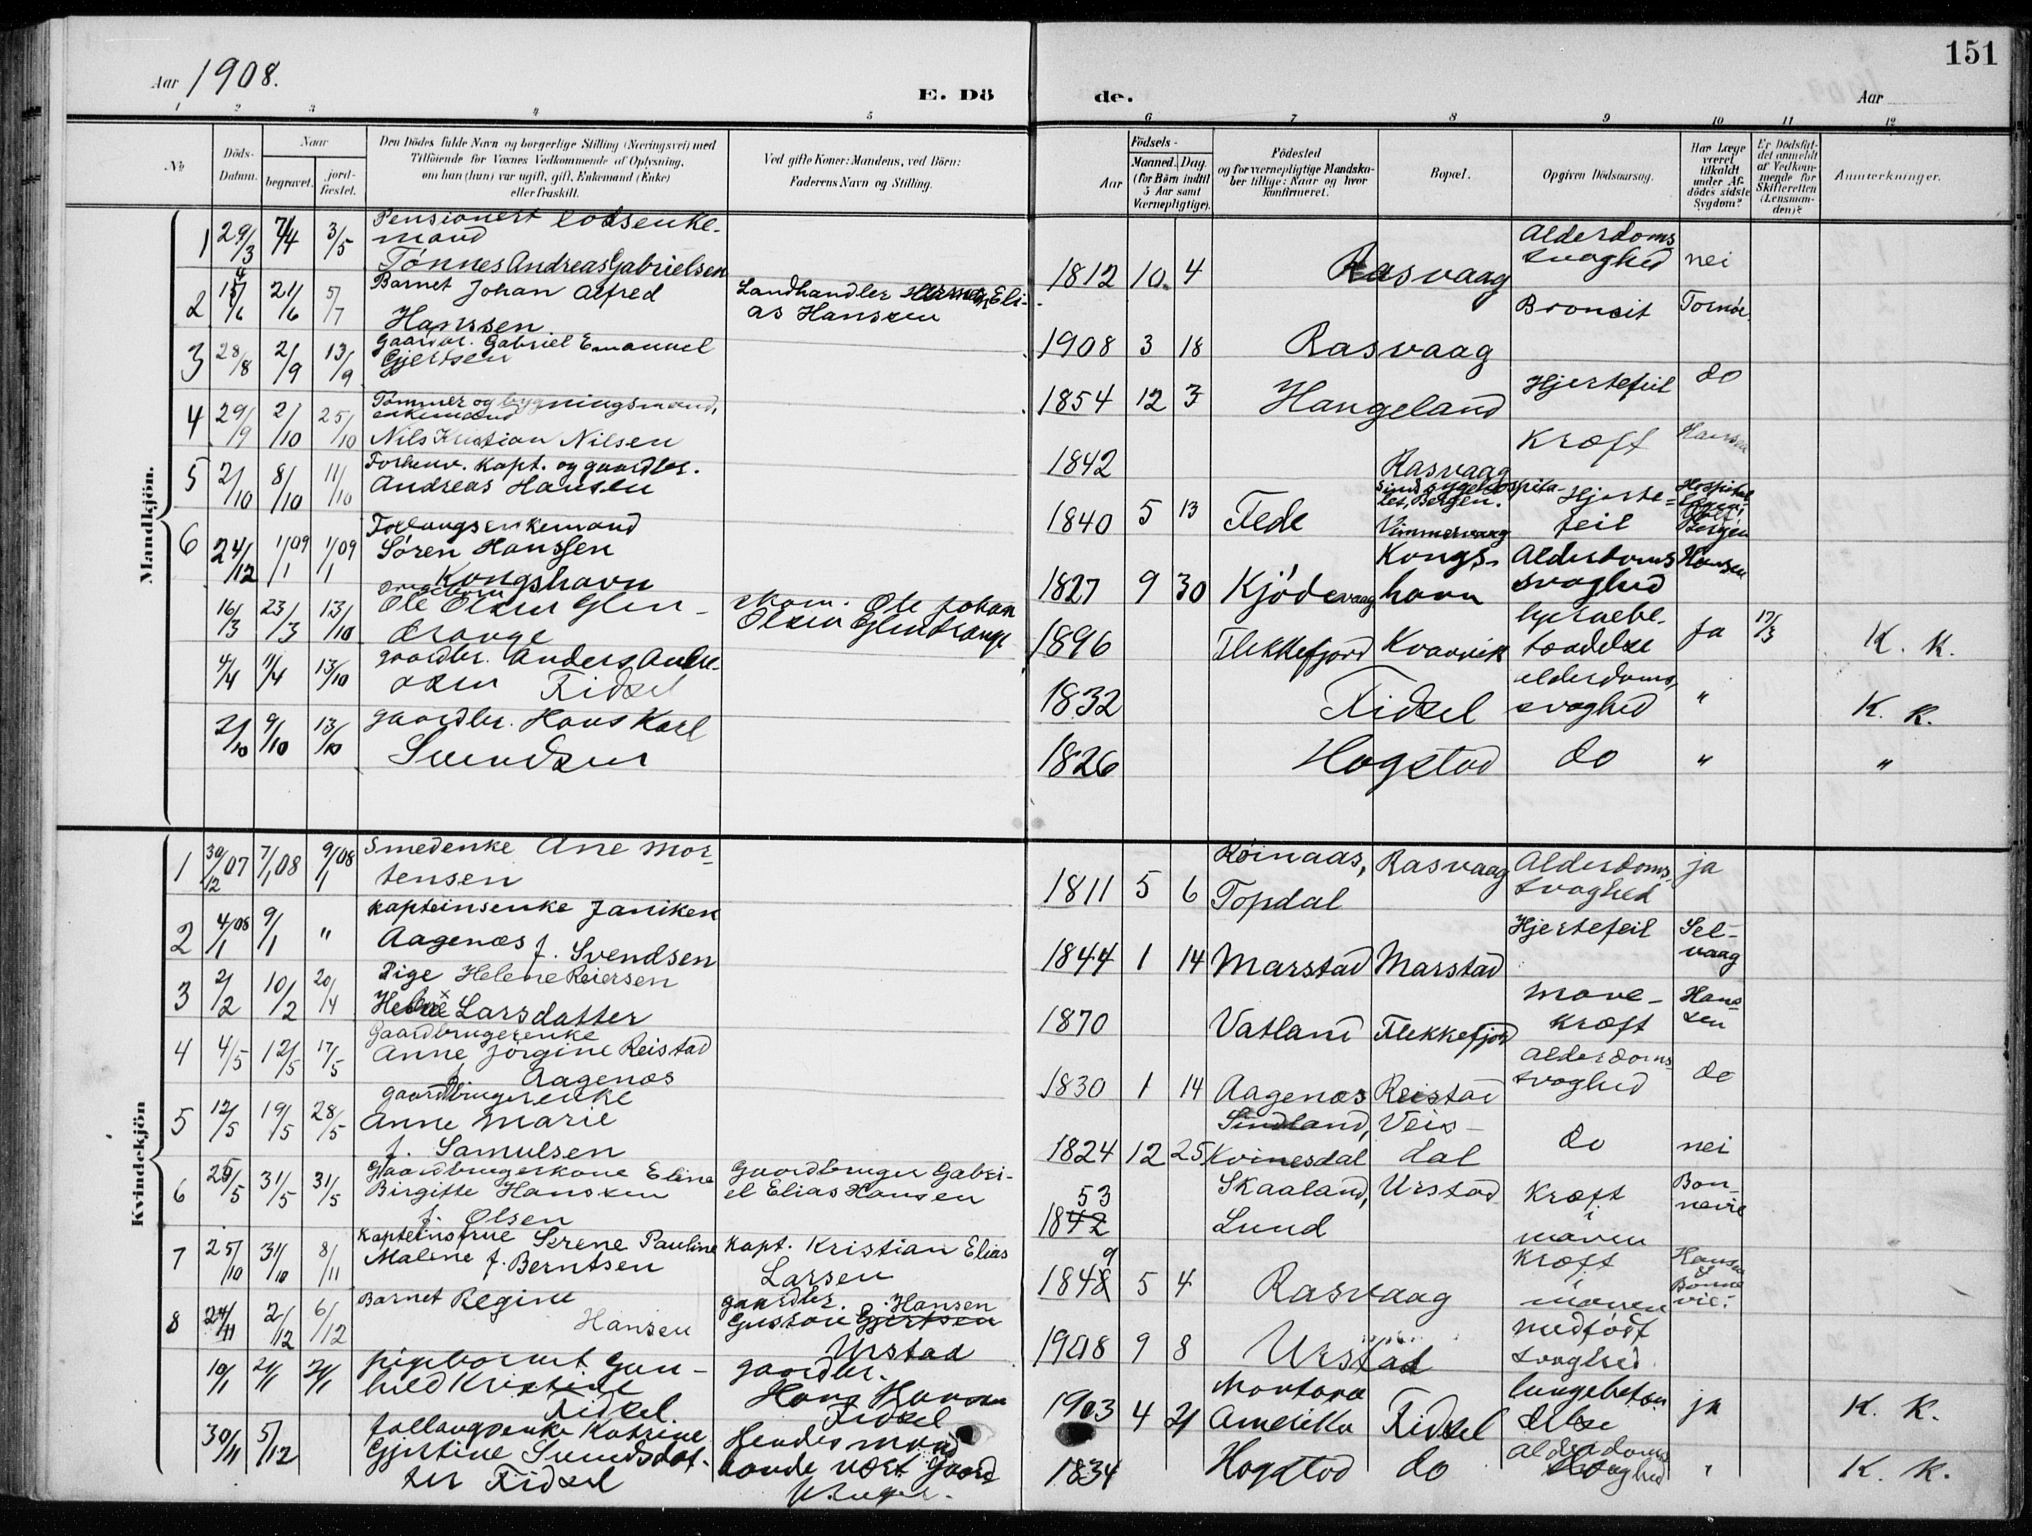 151
Aar 1908.
E. Dö de.
Aar
1 2 3 4 5 6 7 8 9 10 11 12
No
Döds-Datum.
Naar
begravet.
jord-fæstet.
Den Dödes fulde Navn og borgerlige Stilling (Næringsvei) med
Tilföiende for Voxnes Vedkommende af Oplysning,
om han (hun) var ugift, gift, Enkemand (Enke)
eller fraskilt.
Ved gifte Koner: Mandens, ved Börn:
Faderens Navn og Stilling.
Aar
Födsels-
Maaned. Dag.
(for Börn indtil
5 Aar samt
Værnepligtige).
Födested
og for værnepligtige Mandska-
ber tillige: Naar og hvor
konfirmeret.
Bopæl.
Opgiven Dödsaarsag.
Har Læge
været
tilkaldt
under Af-
dödes sidste
Sygdom?
Er Dödsfal-
det anmeldt
af Vedkom-
mende for
Skifteretten
(Lensman-
den)?
Anmerkninger.
Mandkjön.
1 29/3 7/4 3/5 Pensionert lodsenke-
mand
Tønnes Andreas Gabrielsen
1812 10 4 Rasvaag Alderdoms
svaghed nei
2 21/6 5/7 Barnet Johan Alfred
Hanssen
Landhandler Eli-
as Hanssen
1908 3 18 Rasvaag Broncit Tornøe
3 28/8 2/9 13/9 Gaardbr. Gabriel Emanuel
Gjertsen
1854 12 3 Haugeland Hjertefeil do
4 29/9 2/10 25/10 Tømmer og bygningsmand,
enkemand
Nils Kristian Nilsen
1842 Rasvaag Kræft Hansen
5 2/10 8/10 11/10 Forhenv. Kapt. og gaardbr.
Andreas Hansen
1840 5 13 Fede Sindssygehospita-
let, Bergen.
Vimmervaag
Hjerte-
feil
Hospital
Bergen
6 24/12 1/09/1 1/09/1 Forlaugsenkemand
Søren Hanssen
Kongshavn
1827 9 30 Kjødevaag Kongs-
havn
Alderdoms
svaghed Hansen
16/3 23/3 13/10 ungdom
Ole Olsen Glen-
drange
skom. Ole Johan
Olsen Glendrange
1896 Flekkefjord Kvanvik
ja 17/3 K. K.
4/4 11/4 13/10 gaardbr. Anders Andre-
asen Fidsel
1832 Fidsel alderdoms,
svaghed " K. K.
2/10 9/10 13/10 gaardbr. Hans Karl
Svendsen
1826 Hogstad do " "
Kvindekjön
1 30/12 07 7/1 08 9/1 08 Smedenke Ane Mor-
tensen
1811 5 6 Røinaas,
Topdal
Rasvaag Alderdoms
svaghed ja
2 4/1 08 9/1 " Kapteinsenke Janiken
Aagenæs f. Svendsen
1844 1 14 Marstad Marstad Hjertefeil Sel-
vaag
3 2/2 10/2 20/4 Pige Helene Reiersen
Larsdatter
1870 Vatland Flekkefjord Mave-
kræft
Han-
sen
4 4/5 12/5 17/5 Gaardbrugerenke
Anne Jørgine Reistad
f. Aagenæs
1830 1 14 Aagenæs Reistad Alderdoms
svaghed do
5 12/5 19/5 28/5 gaardbrugerenke
Anne Marie
f. Samulsen
1824 12 25 Sindland,
Kvinesdal
Veis-
dal
do nei
6 25/5 31/5 31/5 Gaardbrugerkone Eline
Birgitte Hanssen
f. Olsen
Gaardbruger Gabri-
el Elias Hansen
53
1842 Skaaland,
Lund
Urstad Kræft
i
maven
Bon-
nevie
7 25/10 31/10 8/11 Kapteinsfrue Serene Pauline
Malene f. Berntsen
Kapt. Kristian Elias
Larsen
9
1848 5 4 Rasvaag Kræft
i
maven
Hansen
&
Bonne
vie.
8 24/11 2/12 6/12 Barnet Regine
Hansen
gaardbr. Hansen
Gustav Gjertsen
Urstad
1908 9 8 Urstad Medfødt
svaghed
10/1 21/1 21/1 pigebarnet Gun-
hild Kristine
Fidsel.
gaardbr.
Hans Hansen
Fidsel
1903 4 21 Montana
Amerika
Fidsel
ja K. K.
30/11 5/12 follaugsenke Katrine
Gjertine Svendsdat-
ter Fidsel
Hendes mand
havde vært Gaard
bruger.
1834 Hogstad do alderdoms
svaghed " K. K.